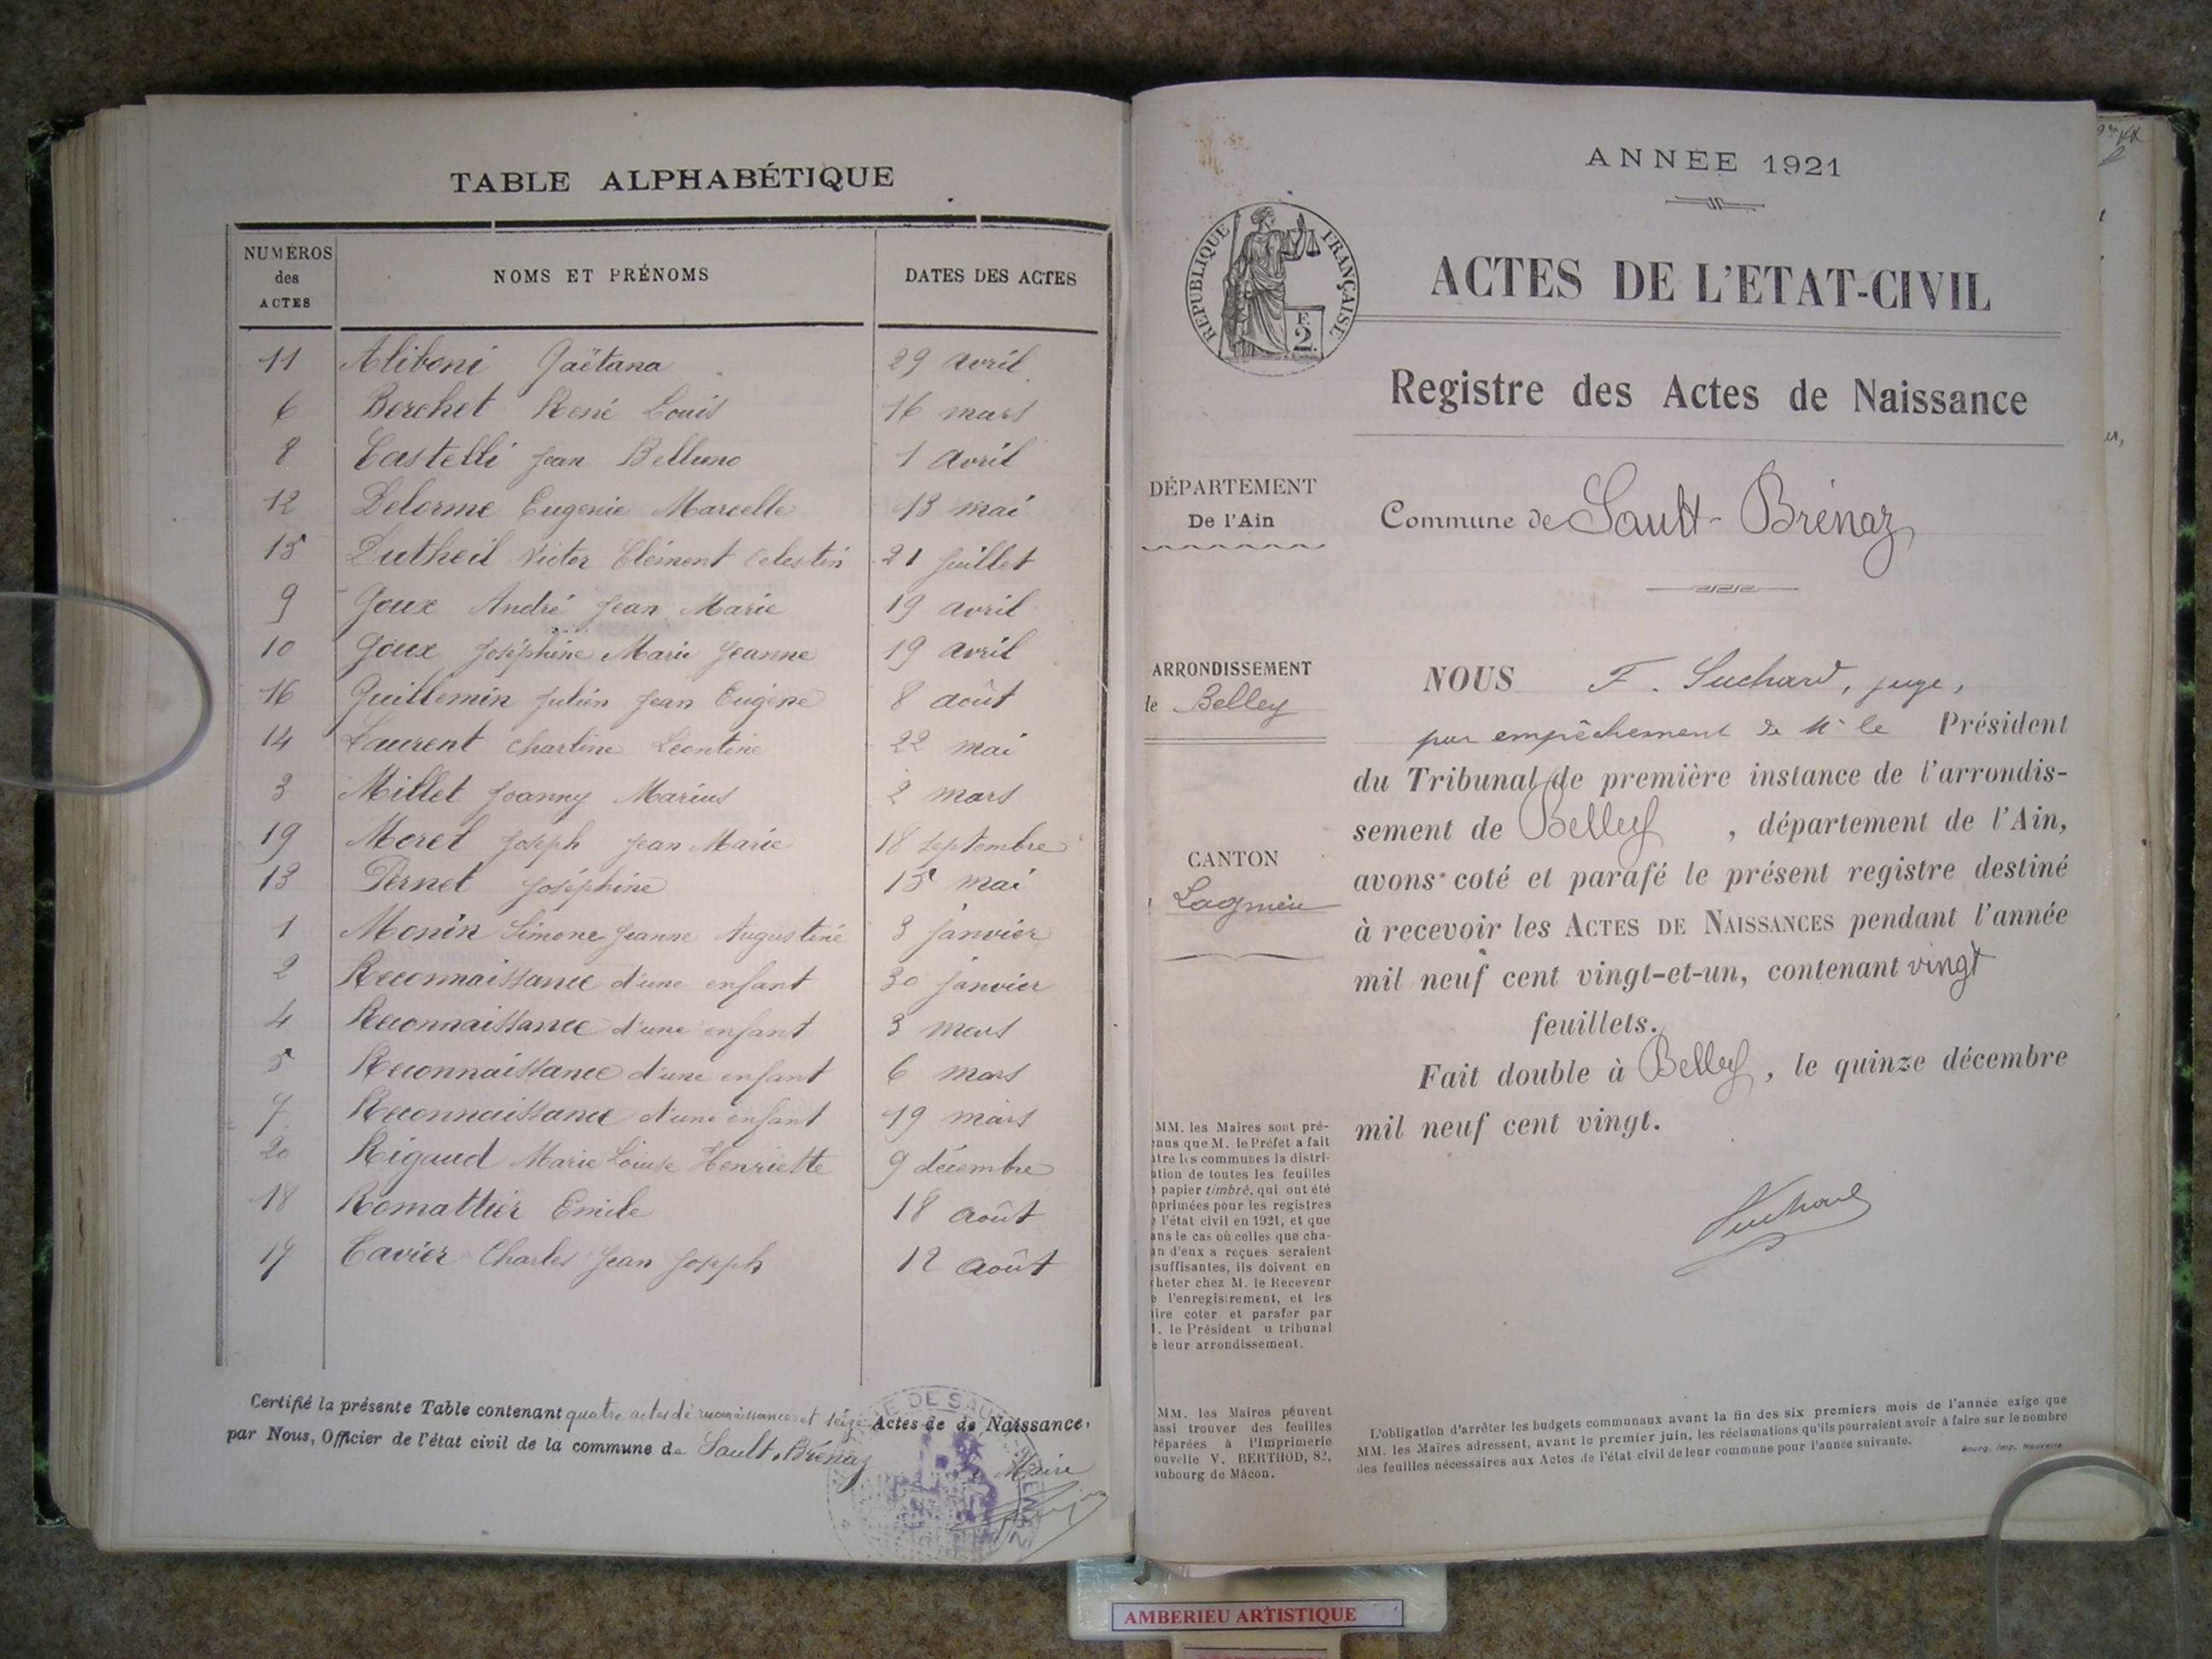 TABLE ALPHABÉTIQUE
NUMÉROS des ACTES NOMS ET PRÉNOMS DATES DES ACTES
11 Aliboni Gaëtana 29 avril
6 Berchet René Louis 16 mars
8 Castelli Jean Belluno 1 avril
12 Delorme Eugenie Marcelle 13 mai
15 Dutheil Victor Clément Celestin 21 juillet
9 Goux André Jean Marie 19 avril
10 Goux Joséphine Marie Jeanne 19 avril
16 Guillemin Julien Jean Eugène 8 août
14 Laurent Charline Leontine 22 mai
3 Millet Joanny Marius 2 mars
19 Morel Joseph Jean Marie 18 septembre
13 Pernet Joséphine 15 mai
1 Monin Simone Jeanne Augustine 3 janvier
2 Reconnaissance d'une enfant 30 janvier
4 Reconnaissance d'une enfant 3 mars
5 Reconnaissance d'une enfant 6 mars
7 Reconnaissance d'une enfant 19 mars
20 Rigaud Marie Louise Henriette 9 décembre
18 Romattier Emile 18 août
17 Cavier Charles Jean Joseph 12 août
Certifié la présente Table contenant quatre actes de reconnaissance et seize Actes de de Naissance,
par Nous, Officier de l'état civil de la commune de Sault-Brénaz
Maire
ANNÉE 1921
RÉPUBLIQUE FRANÇAISE
F.
2.
ACTES DE L'ETAT-CIVIL
Registre des Actes de Naissance
DÉPARTEMENT
De l'Ain
Commune de Sault-Brénaz
ARRONDISSEMENT
de Belley
CANTON
Lagnieu
NOUS F. Suchard, juge,
par empêchement de Mr le Président
du Tribunal de première instance de l'arrondis-
sement de Belley, département de l'Ain,
avons coté et parafé le présent registre destiné
à recevoir les ACTES DE NAISSANCES pendant l'année
mil neuf cent vingt-et-un, contenant vingt
feuillets.
Fait double à Belley, le quinze décembre
mil neuf cent vingt.
Suchard
MM. les Maires sont pré-
nus que M. le Préfet a fait
tre les communes la distri-
tion de toutes les feuilles
papier timbré, qui ont été
primées pour les registres
l'état civil en 1921, et que
ans le cas où celles que cha-
n d'eux a reçues seraient
suffisantes, ils doivent en
heter chez M. le Receveur
l'enregistrement, et les
ire coter et parafer par
. le Président u tribunal
leur arrondissement.
MM. les Maires peuvent
ssi trouver des feuilles
réparées à l'Imprimerie
ouvelle V. BERTHOD, 82,
ubourg de Mâcon.
L'obligation d'arrêter les budgets communaux avant la fin des six premiers mois de l'année exige que
MM. les Maires adressent, avant le premier juin, les réclamations qu'ils pourraient avoir à faire sur le nombre
des feuilles nécessaires aux Actes de l'état civil de leur commune pour l'année suivante.
Bourg, Imp. Nouvelle
AMBERIEU ARTISTIQUE